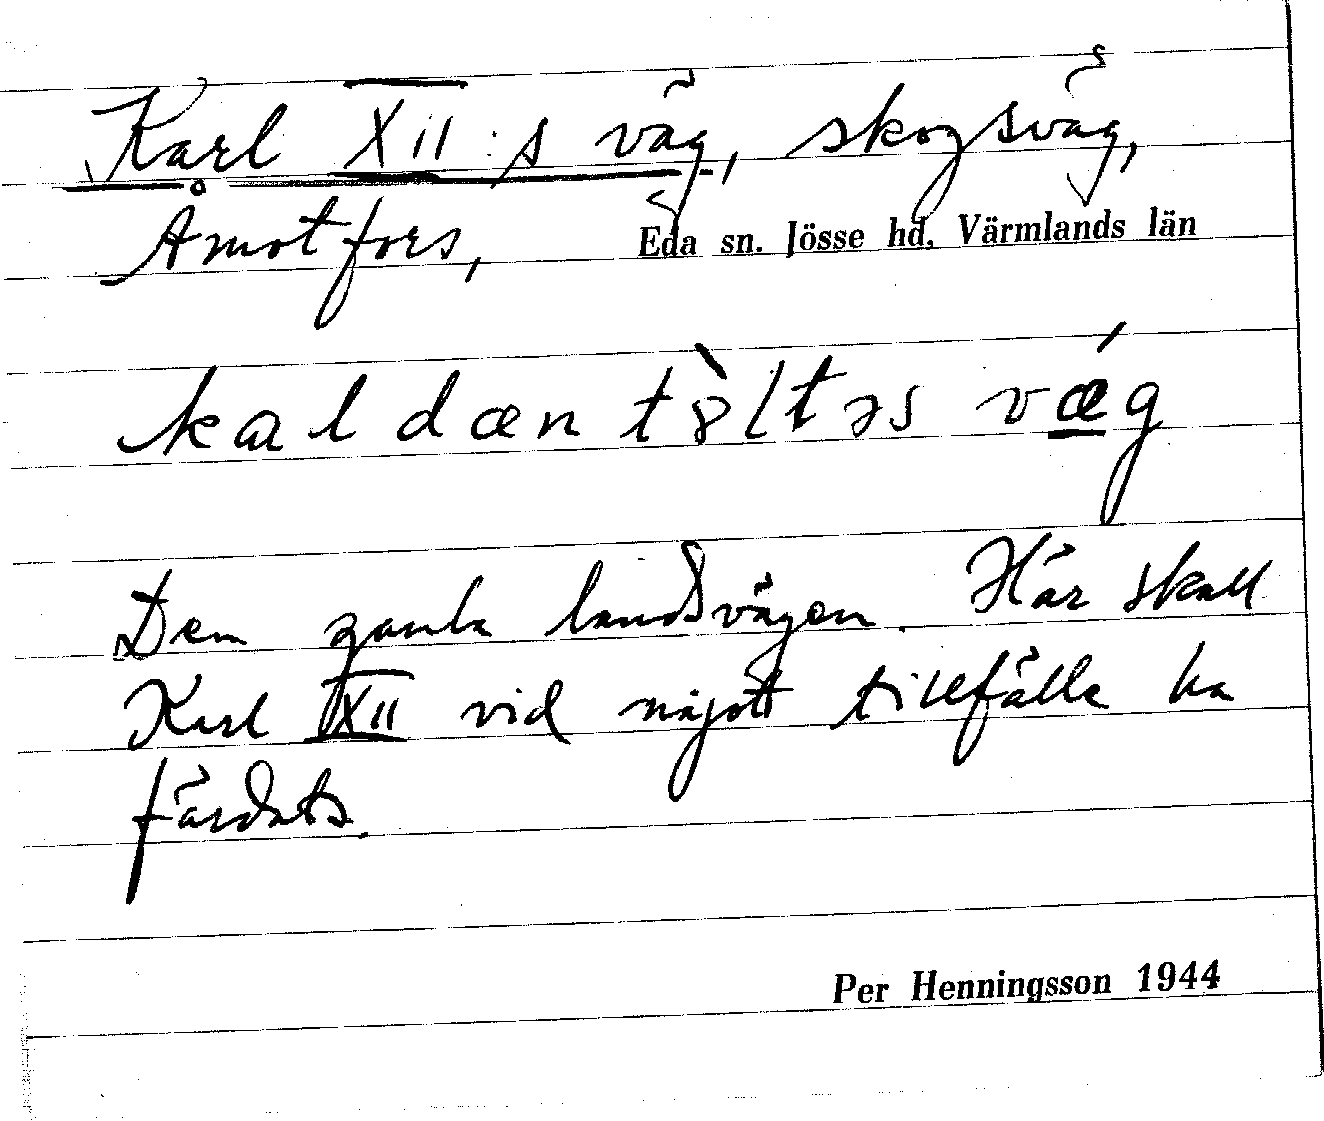 Karl XII:s väg, skogsväg,
Åmotfors, Eda sn. Jösse hd, Värmlands län
kal dæn tò̈ltəs vǽ̲g
Den gamla landsvägen. Här skall
Karl XII vid något tillfälle ha
färdats.
Per Henningsson 1944